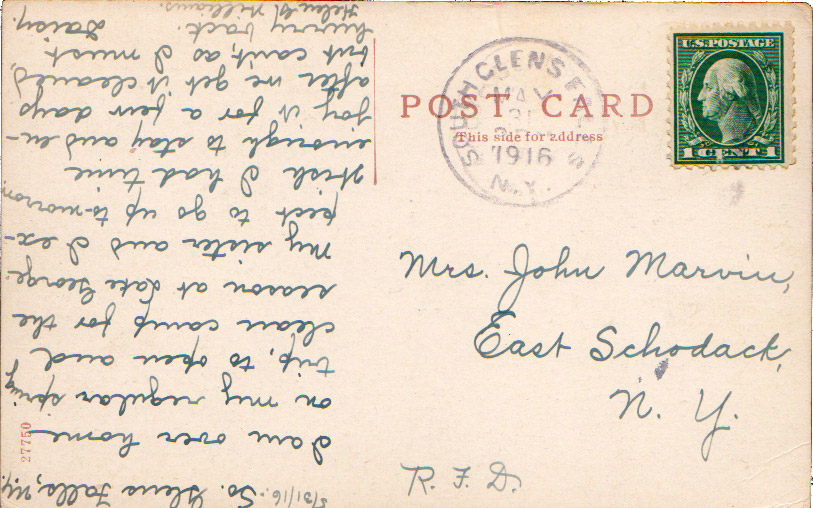 POST CARD
This side for address
SOUTH GLENS FALLS
MAY
31
1916
N.Y.
U.S. POSTAGE
1 CENT 1
Mrs. John Marvin,
East Schodack,
N. Y.
R. F. D.
27750
5/31/16. So. Glens Falls, N.Y.
I am over home
on my regular spring
trip, to open and
clean camp for the
season at Lake George.
My sister and I ex-
pect to go up to-morrow.
Wish I had time
enough to stay and en-
joy it for a few days
after we get it cleaned,
but can't, as I must
hurry back. Daisy.
Helen Williams.